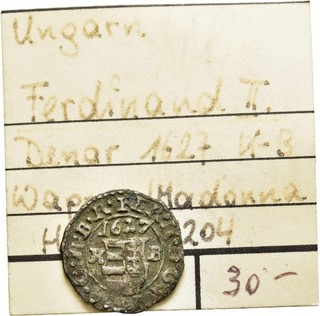 Ungarn
Ferdinand II.
Denar 1627 K-B
Wap /Madonna
H 204
30-
1627
K B